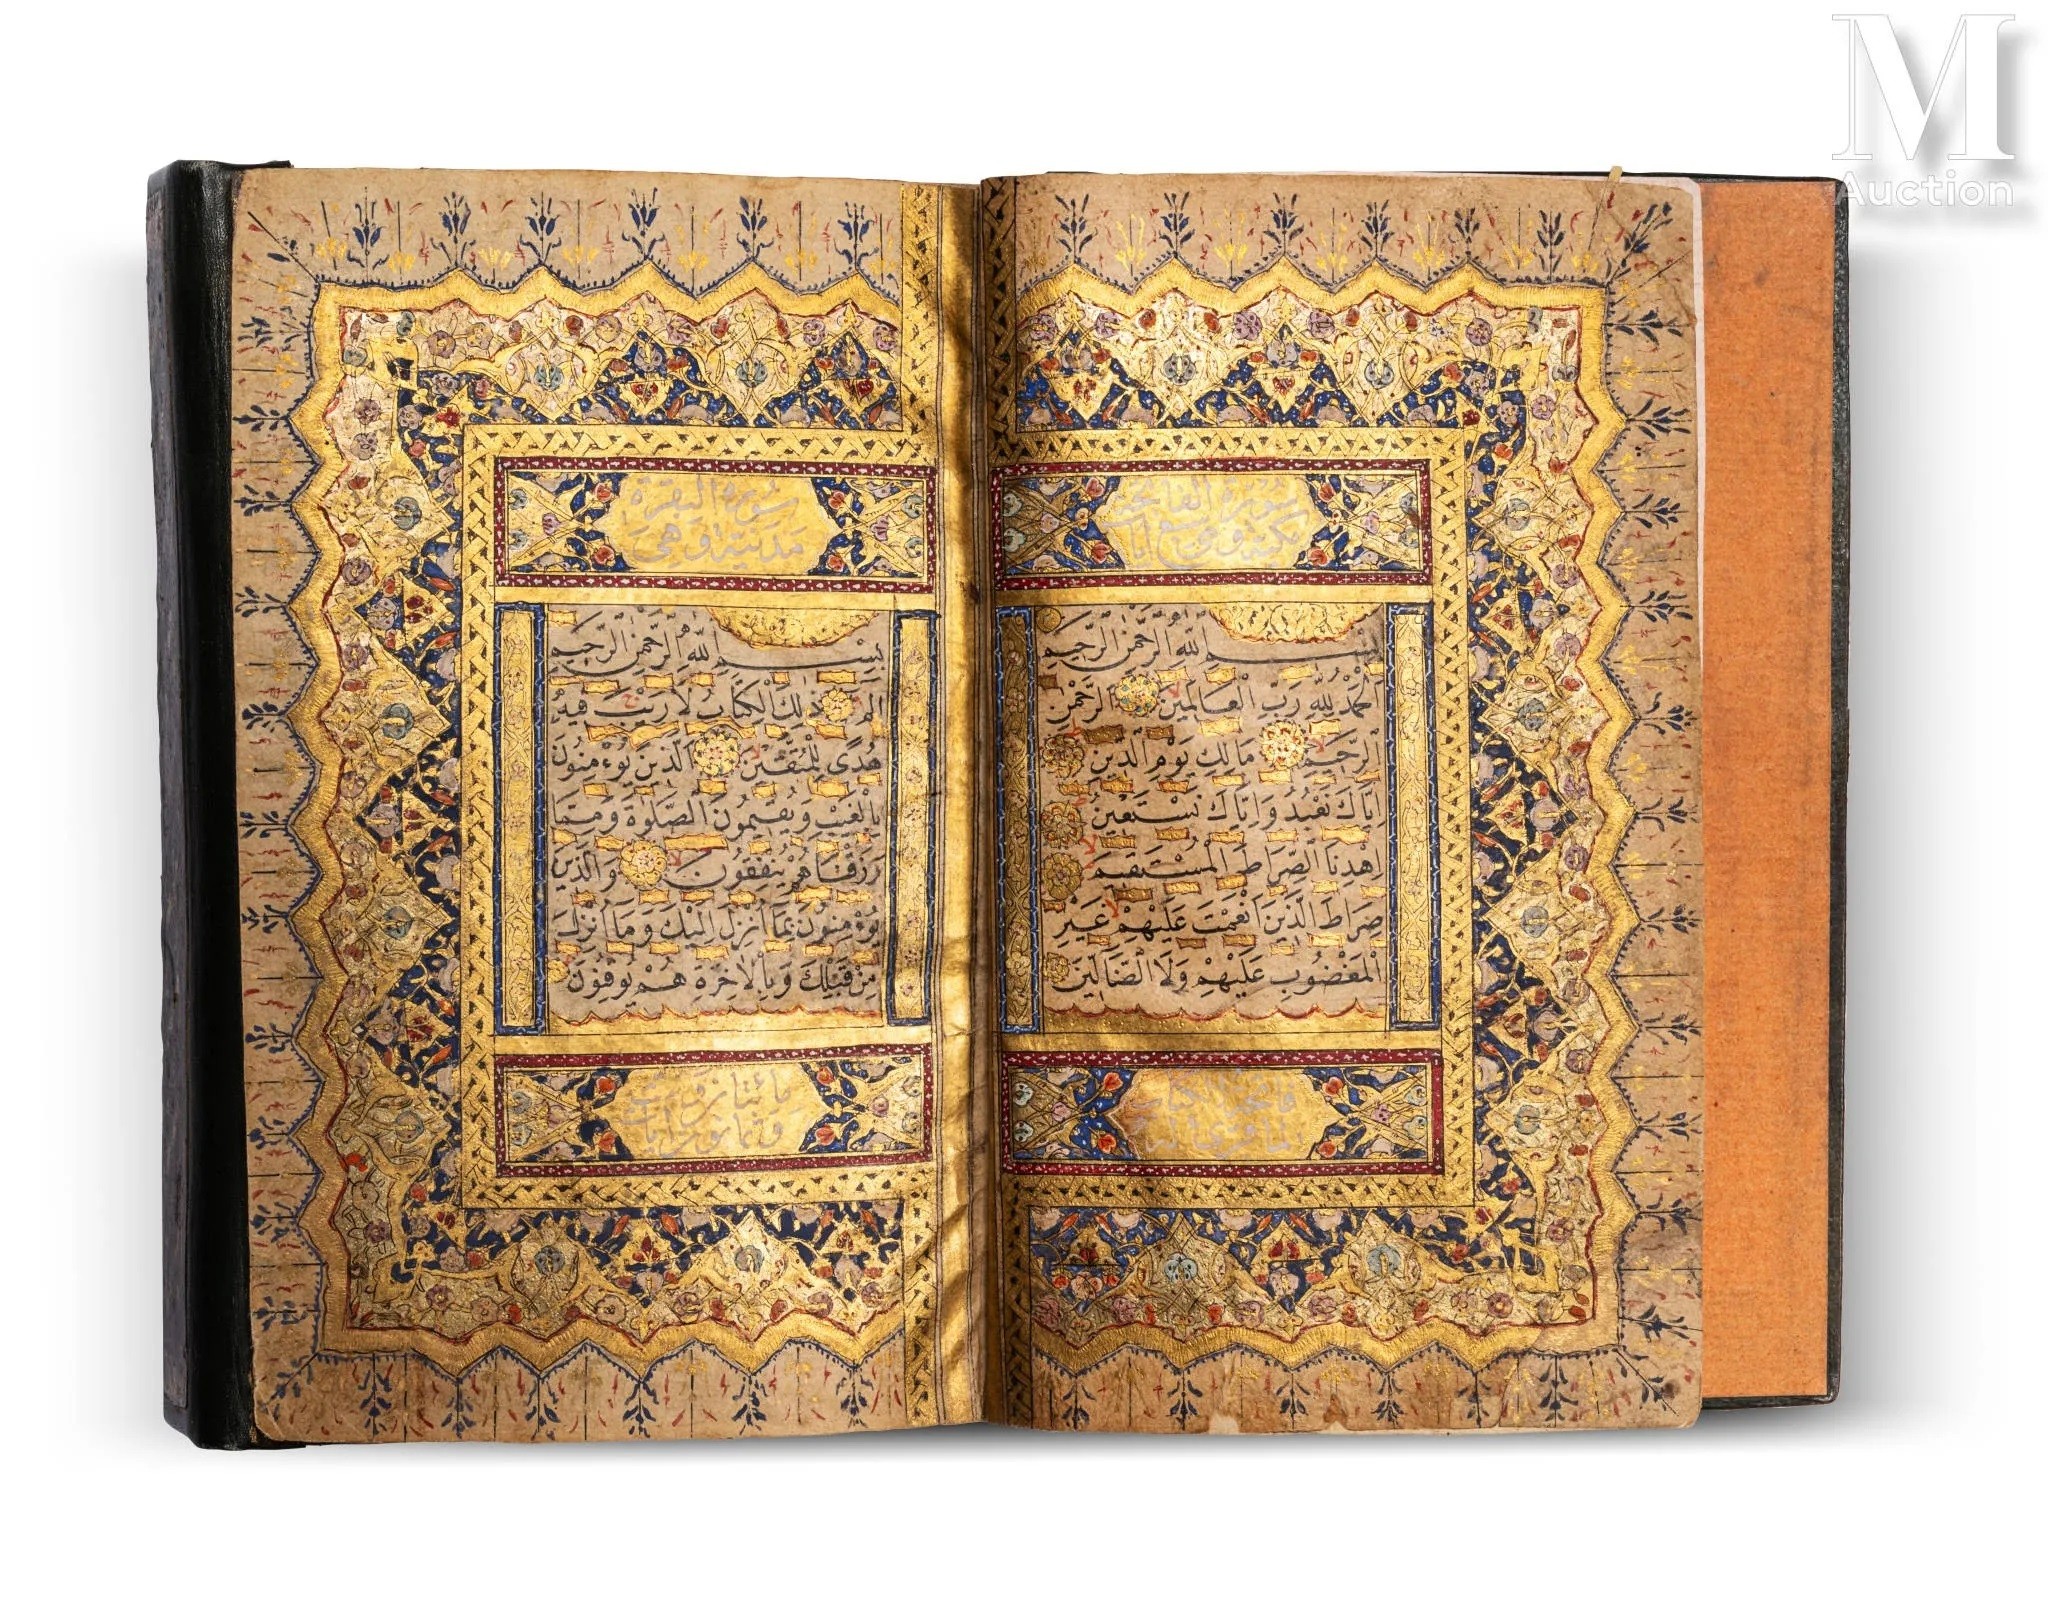 سورة الفاتحة
مكية وهي سبع آيات
بسم الله الرحمن الرحيم
الحمد لله رب العالمين الرحمن
الرحيم مالك يوم الدين
اياك نعبد واياك نستعين
اهدنا الصراط المستقيم
صراط الذين انعمت عليهم غير
المغضوب عليهم ولا الضالين
فاتحة الكتاب
سورة البقرة
مدنية وهي
بسم الله الرحمن الرحيم
الم ذلك الكتاب لا ريب فيه
هدى للمتقين الذين يؤمنون
بالغيب ويقيمون الصلوة ومما
رزقناهم ينفقون والذين
يؤمنون بما انزل اليك وما انزل
من قبلك وبالاخرة هم يوقنون
مائتان و
وثمانون آيات
M
Auction